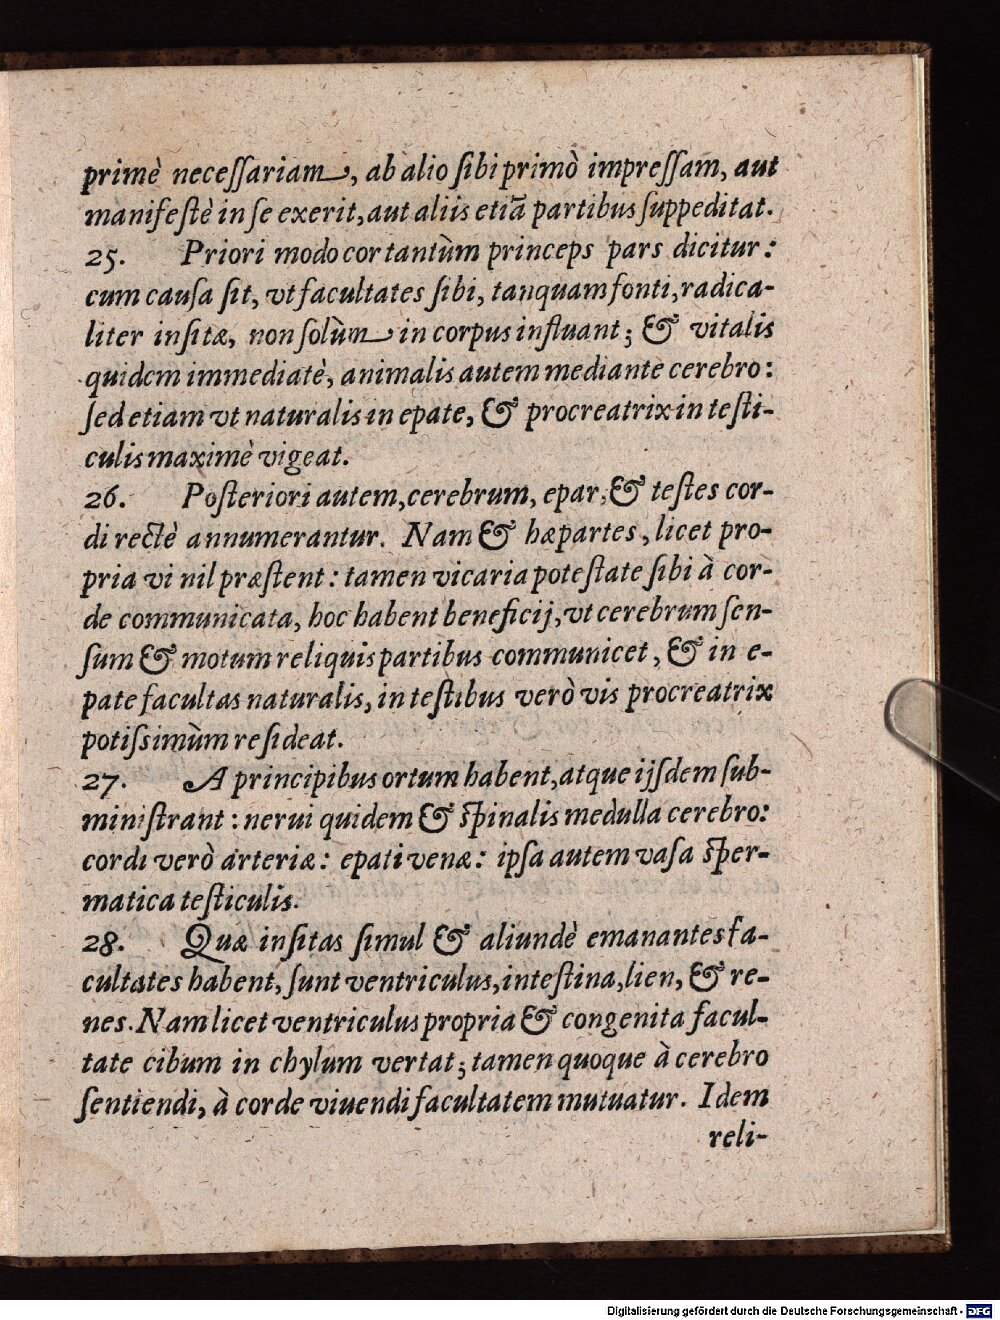 primè neceſſariam, ab alio ſibi primò impreſſam, aut
manifeſtè in ſe exerit, aut aliis etiã partibus ſuppeditat.
25. Priori modo cor tantùm princeps pars dicitur:
cum cauſa ſit, vt facultates ſibi, tanquam fonti, radica-
liter inſitæ, non ſolùm in corpus influant; & vitalis
quidem immediatè, animalis autem mediante cerebro:
ſed etiam vt naturalis in epate, & procreatrix in teſti-
culis maximè vigeat.
26. Poſteriori autem, cerebrum, epar, & teſtes cor-
di rectè annumerantur. Nam & hæ partes, licet pro-
pria vi nil præſtent: tamen vicaria poteſtate ſibi à cor-
de communicata, hoc habent beneficij, vt cerebrum ſen-
ſum & motum reliquis partibus communicet, & in e-
pate facultas naturalis, in teſtibus verò vis procreatrix
potiſsimùm reſideat.
27. A principibus ortum habent, atque ijſdem ſub-
miniſtrant: nerui quidem & ſpinalis medulla cerebro:
cordi verò arteriæ: epati venæ: ipſa autem vaſa ſper-
matica teſticulis.
28. Quæ inſitas ſimul & aliundè emanantes fa-
cultates habent, ſunt ventriculus, inteſtina, lien, & re-
nes. Nam licet ventriculus propria & congenita facul-
tate cibum in chylum vertat; tamen quoque à cerebro
ſentiendi, à corde viuendi facultatem mutuatur. Idem
reli-
Digitalisierung gefördert durch die Deutsche Forschungsgemeinschaft - DFG